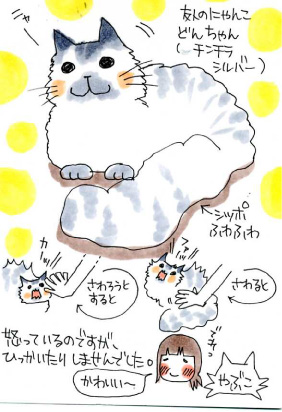 ニャー
友人のにゃんこ
どんちゃん
(チンチラ
シルバー)
シッポ
ふわふわ
カッ
さわろうと
すると
さわると
怒っているのですが、
ひっかいたりしませんでした。
かわいい〜
やぶこ